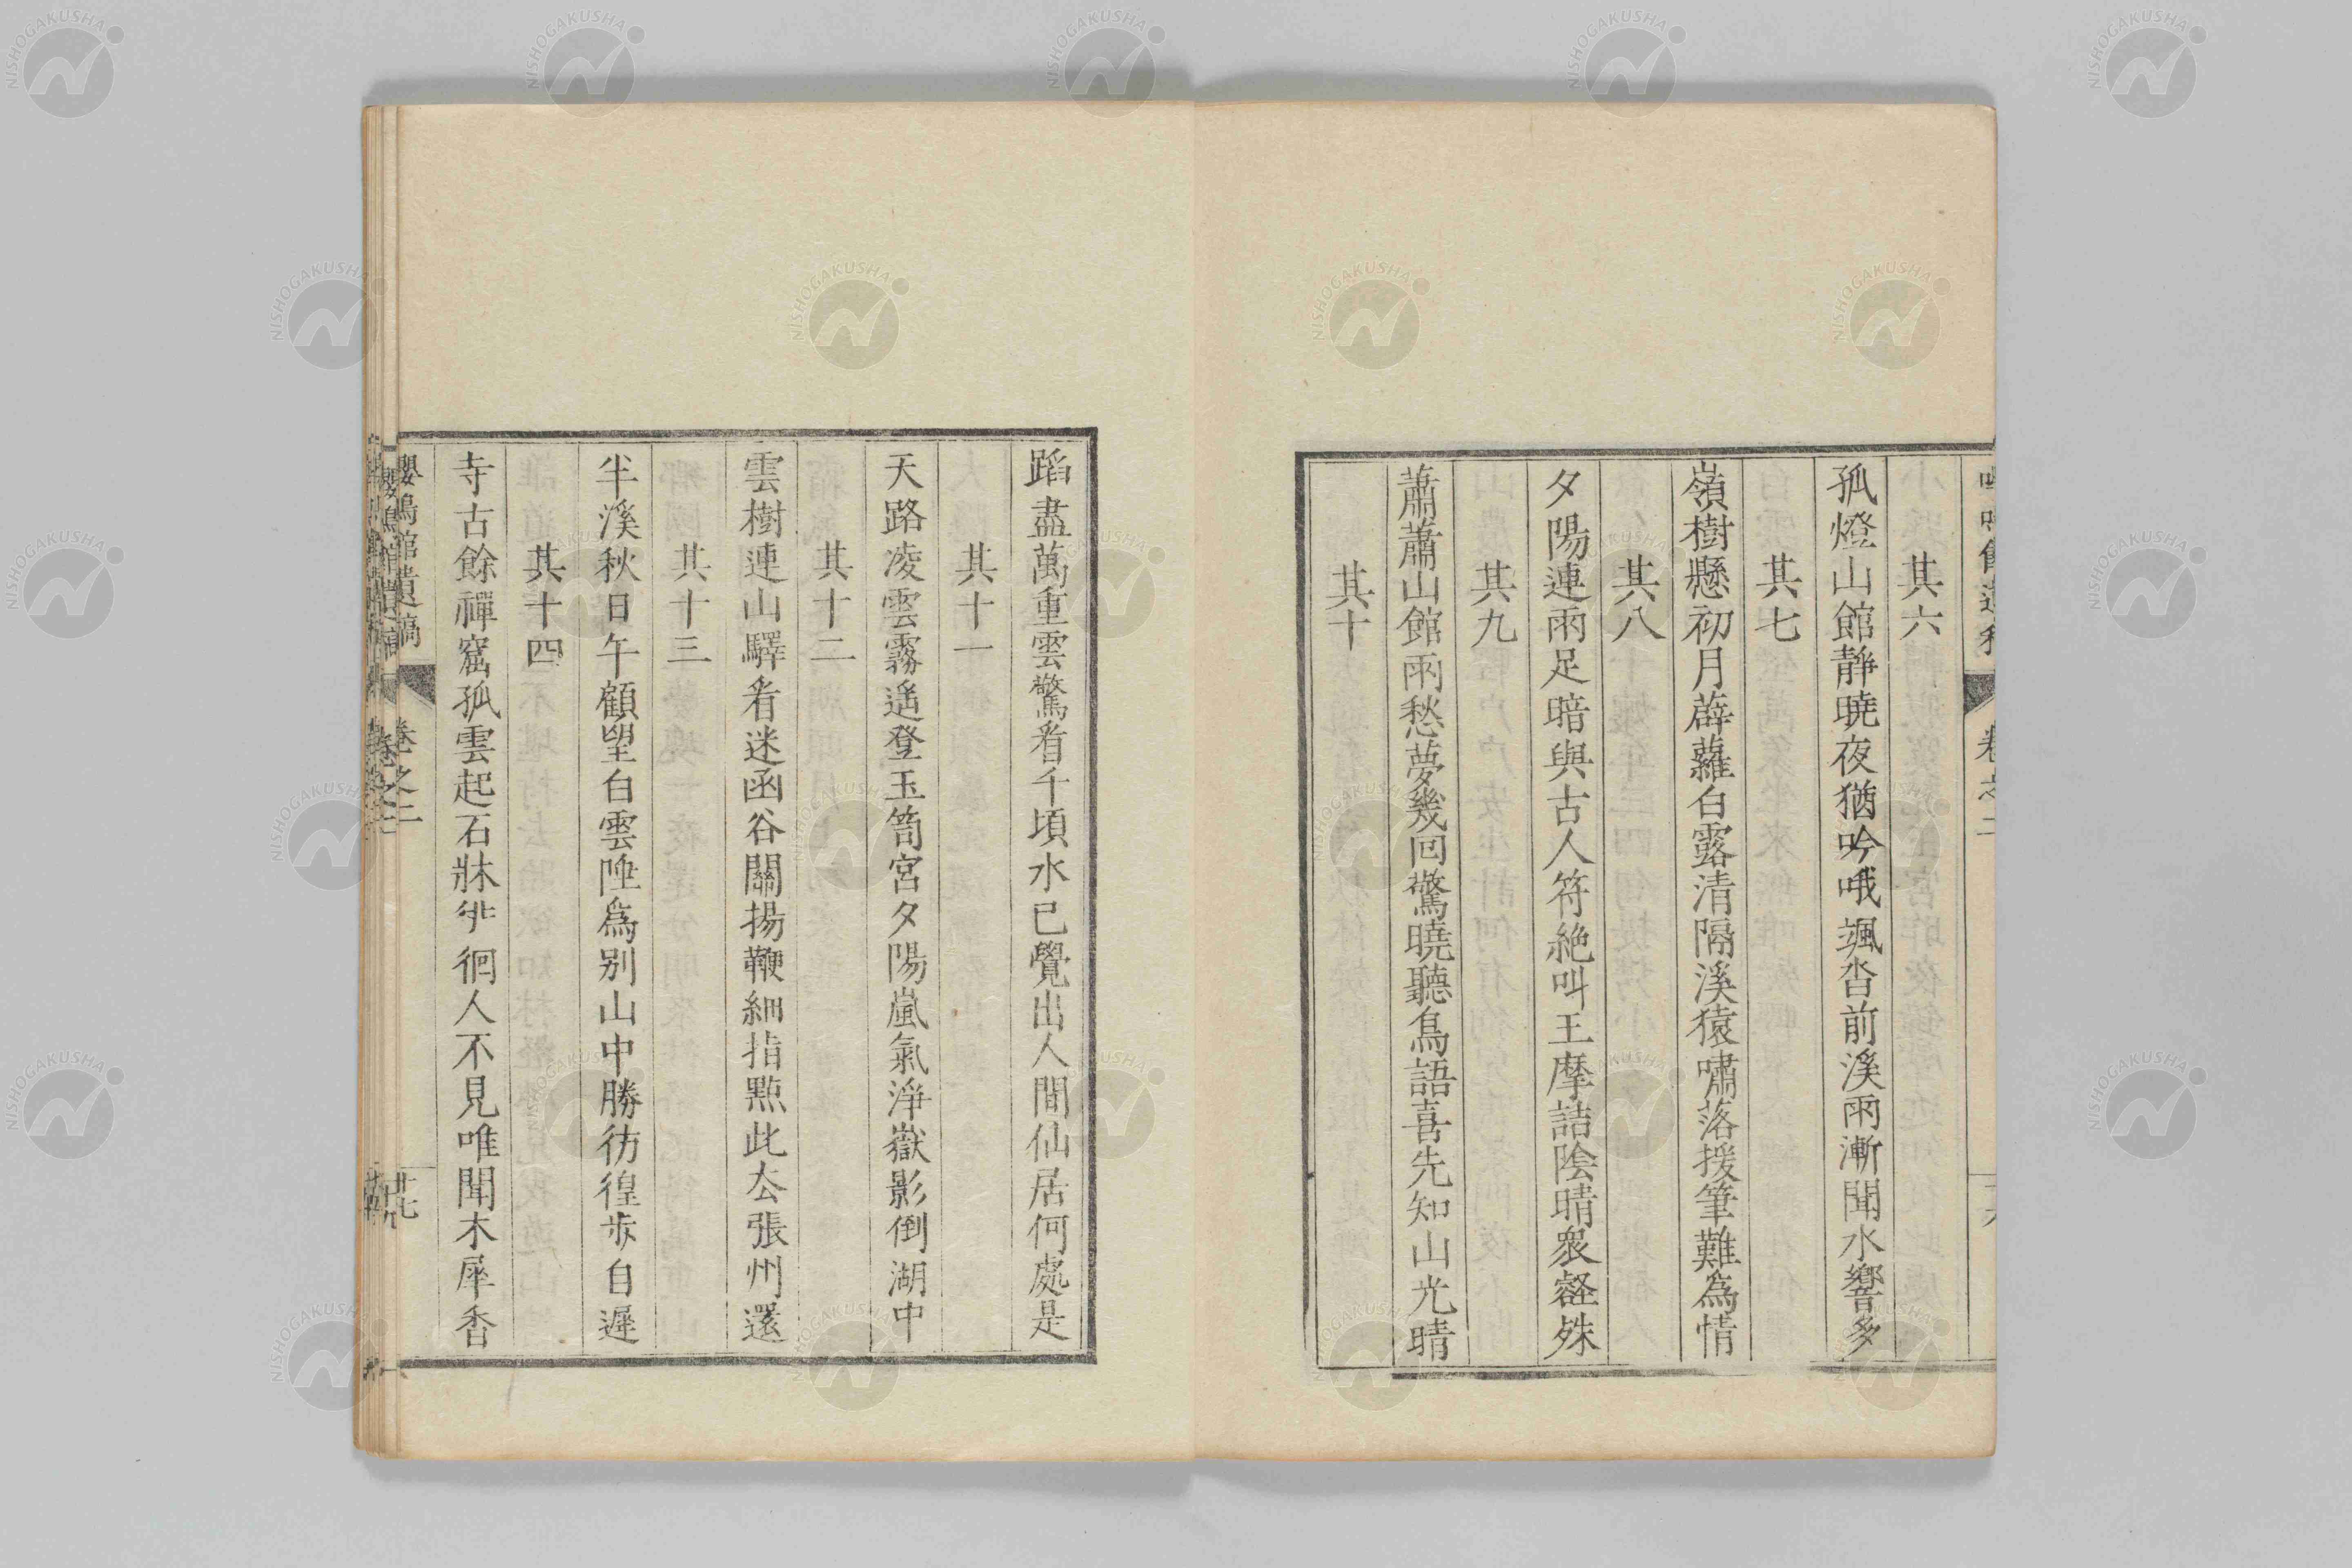 其六
孤燈山館靜曉夜猶吟哦颯沓前溪雨漸聞水響多
其七
嶺樹懸初月薜蘿白露清隔溪猿嘯落援筆難為情
其八
夕陽連雨足暗與古人符絶叫王摩詰陰晴衆壑殊
其九
蕭蕭山館雨愁夢幾回驚曉聽鳥語喜先知山光晴
其十
蹈盡萬重雲驚看千頃水已覺出人間仙居何處是
其十一
天路凌雲霧遙登玉笥宮夕陽嵐氣淨嶽影倒湖中
其十二
雲樹連山驛看迷函谷關揚鞭細指點此厺張州還
其十三
半溪秋日午顧望白雲陲爲别山中勝彷徨步自遲
其十四
寺古餘禪窟孤雲起石牀徘徊人不見唯聞木犀香
嚶鳴館遺稿 卷之二 十七
NISHOGAKUSHA